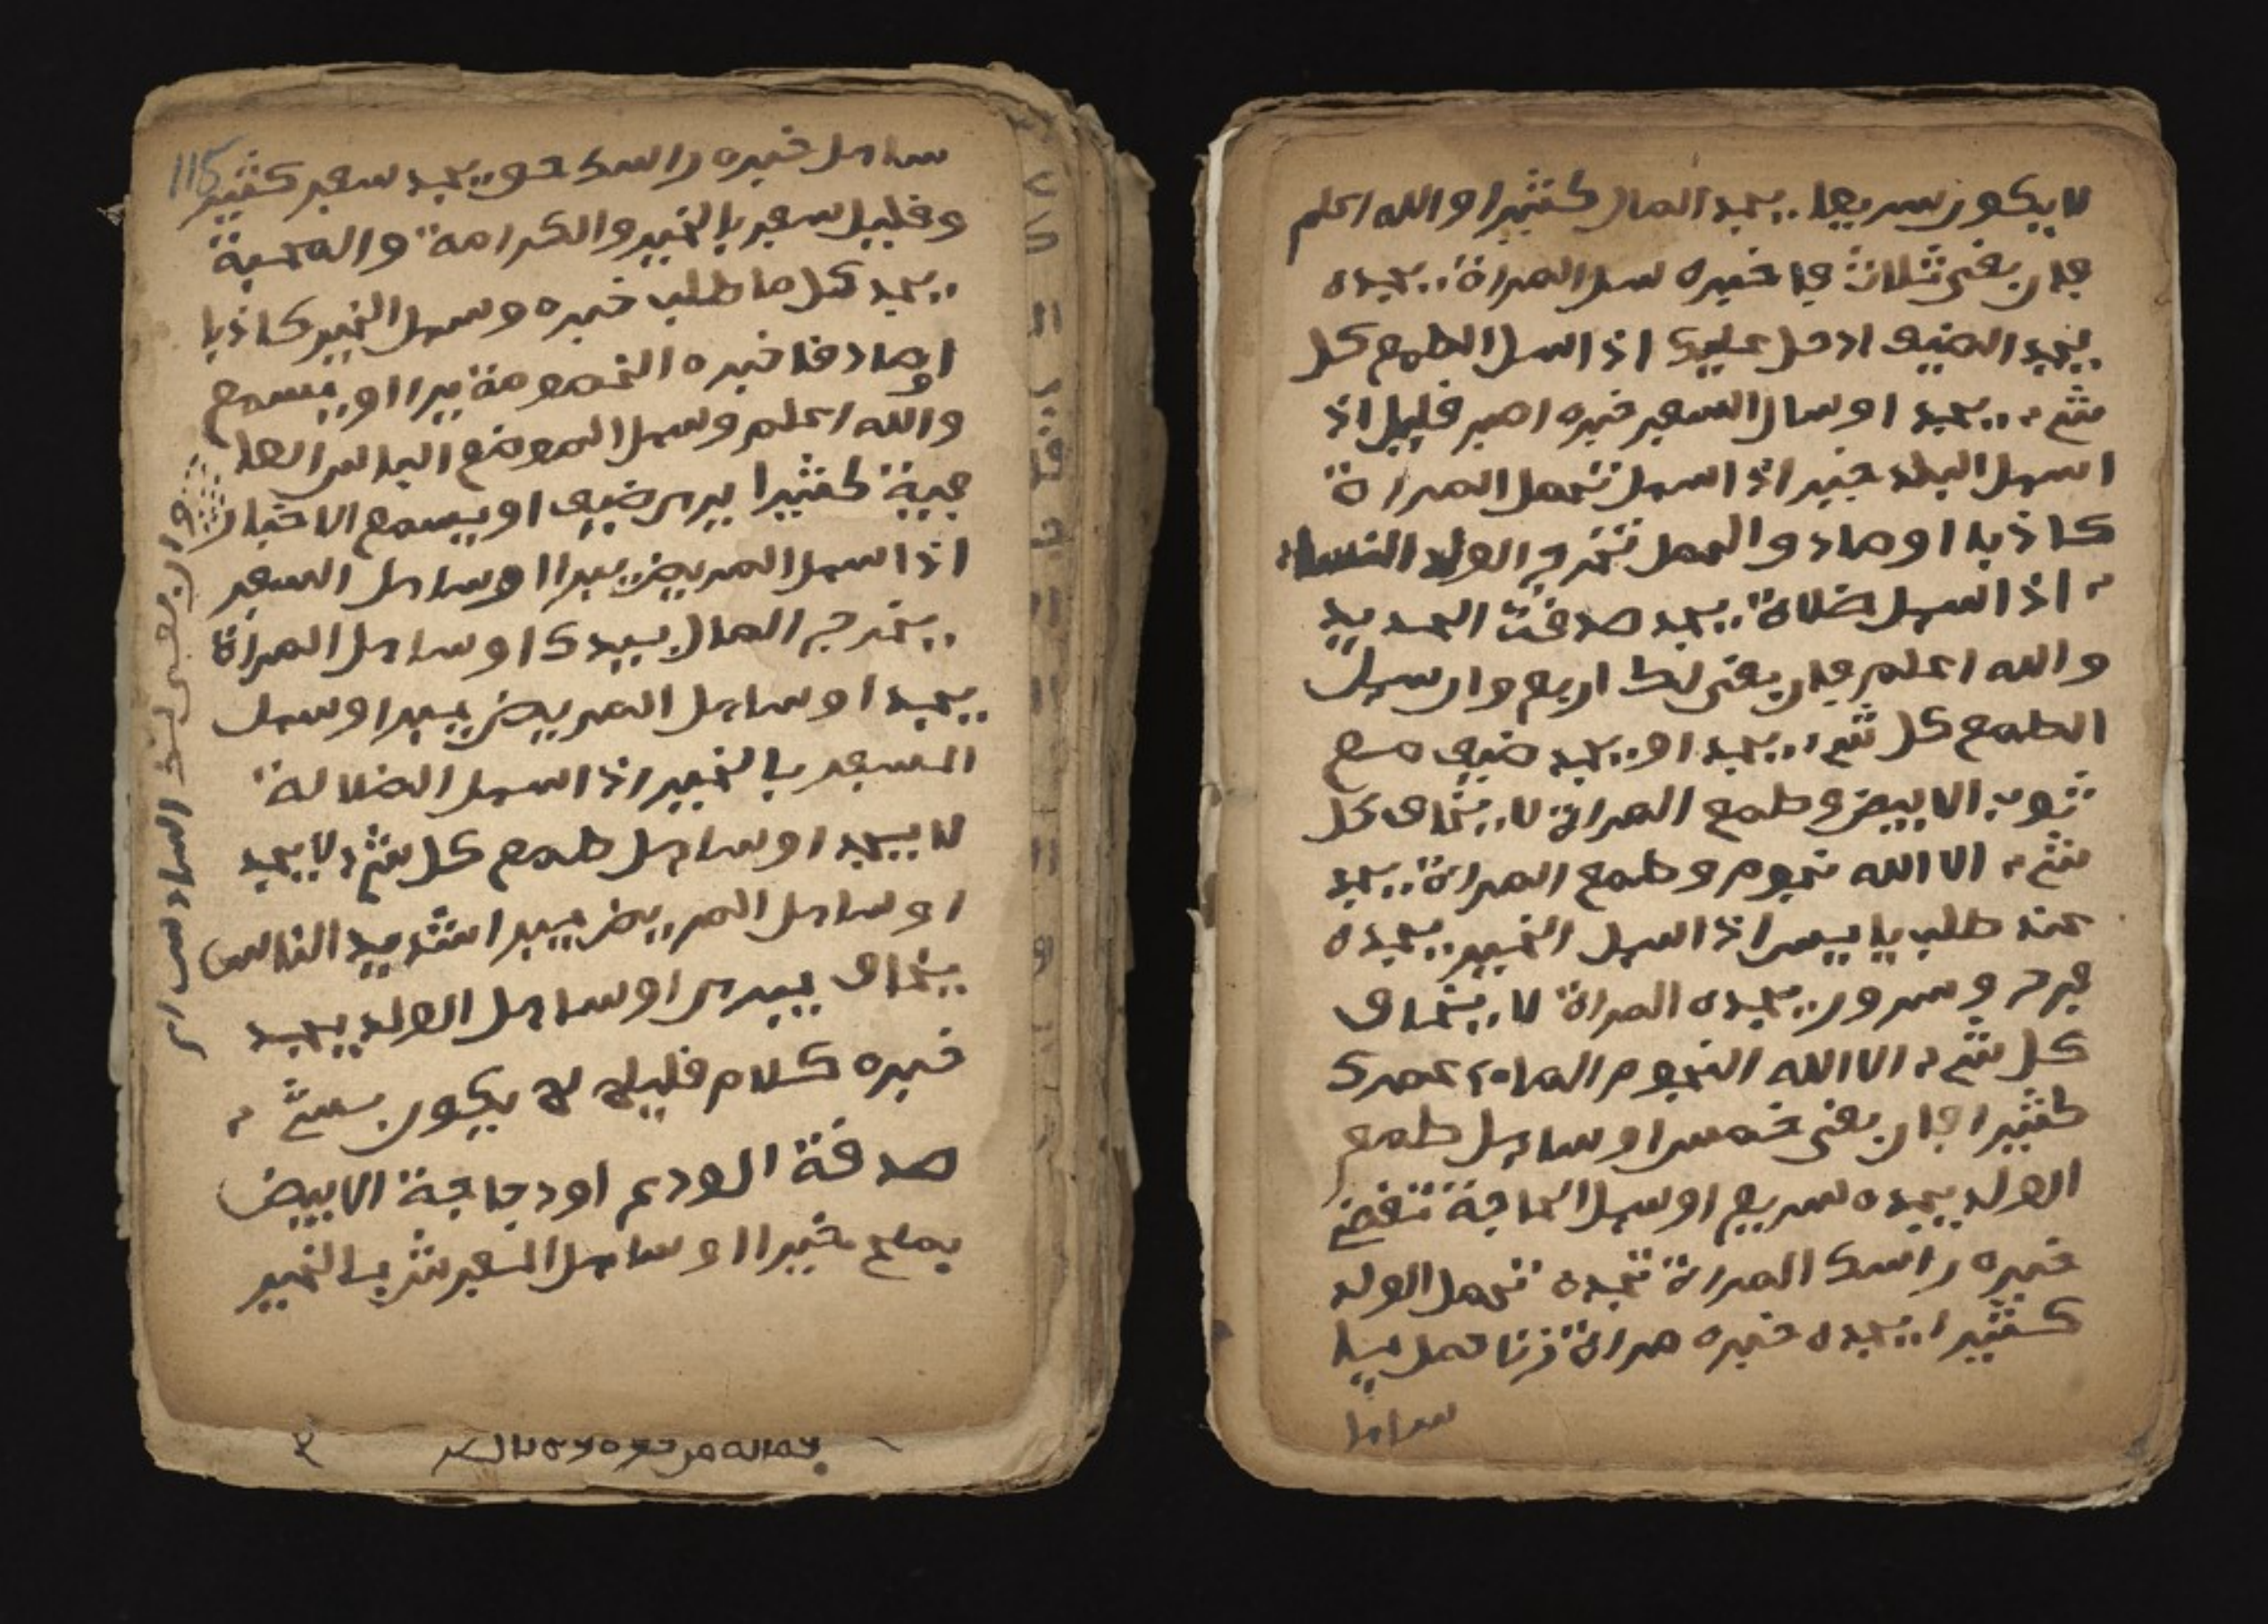 لا يكون سريعا يجد المال كثيرا والله اعلم
فان بقى ثلاث فاخبره سيل المراة يجده
يجد الضيف ادخل عليك اذا سيل الطمع كل
شيء يجد او سال السفر خبره اصبر قليل اذ
اسيل البلد خير اذا سيل تحمل المراة
كاذبا او صاد والحمل تخرج الولد النساء
اذا سيل ضلاة يجد صدقت الحديد
والله اعلم فان بقى لك اربع وان سيل
الطمع كل شيء يجد او يجد ضيف مع
ثوب الابيض وطمع المراة لا يخاف كل
شيء الا الله نجوم وطمع المراة يجد
عند طلب يا يسر اذا سيل الخير يجده
فرح وسرور يجده المراة لا يخاف
كل شيء الا الله النجوم الماء عمرك
كثيرا فان بقى خمس او سايل طمع
الولد يجده سريع او سيل الحاجة تقض
خبره راسك المراة تجده تحمل الولد
كثيرا يجده خبره مراة زنا حمل
سايل
115
سايل خبره راسك حو يجد سفر كثير
وقليل سفر بالخير والكرامة والمحبة
يجد كل ما طلب خبره وسيل الخير كاذبا
او صادقا خبره الخصومة يبرا او يسمع
والله اعلم وسيل الموضع الباس العا
فية كثيرا يرى ضيف او يسمع الاخبار
اذا سيل المريض يبرا او سايل السفر
يخرج المال بيدك او سايل المراة
يجد او سايل المريض يبرا او سيل
السفر بالخير اذا سيل الضلالة
لا يجد او سايل طمع كل شيء لا يجد
او سايل المريض يبرا شديد الناس
يخاف يبرى او سايل الولد يجد
خبره كلام قليل لا يكون بشيء
صدقة الودع او دجاجة الابيض
يملع خيرا او سايل السفر شر بالخير
وان بقى لك السادس ان